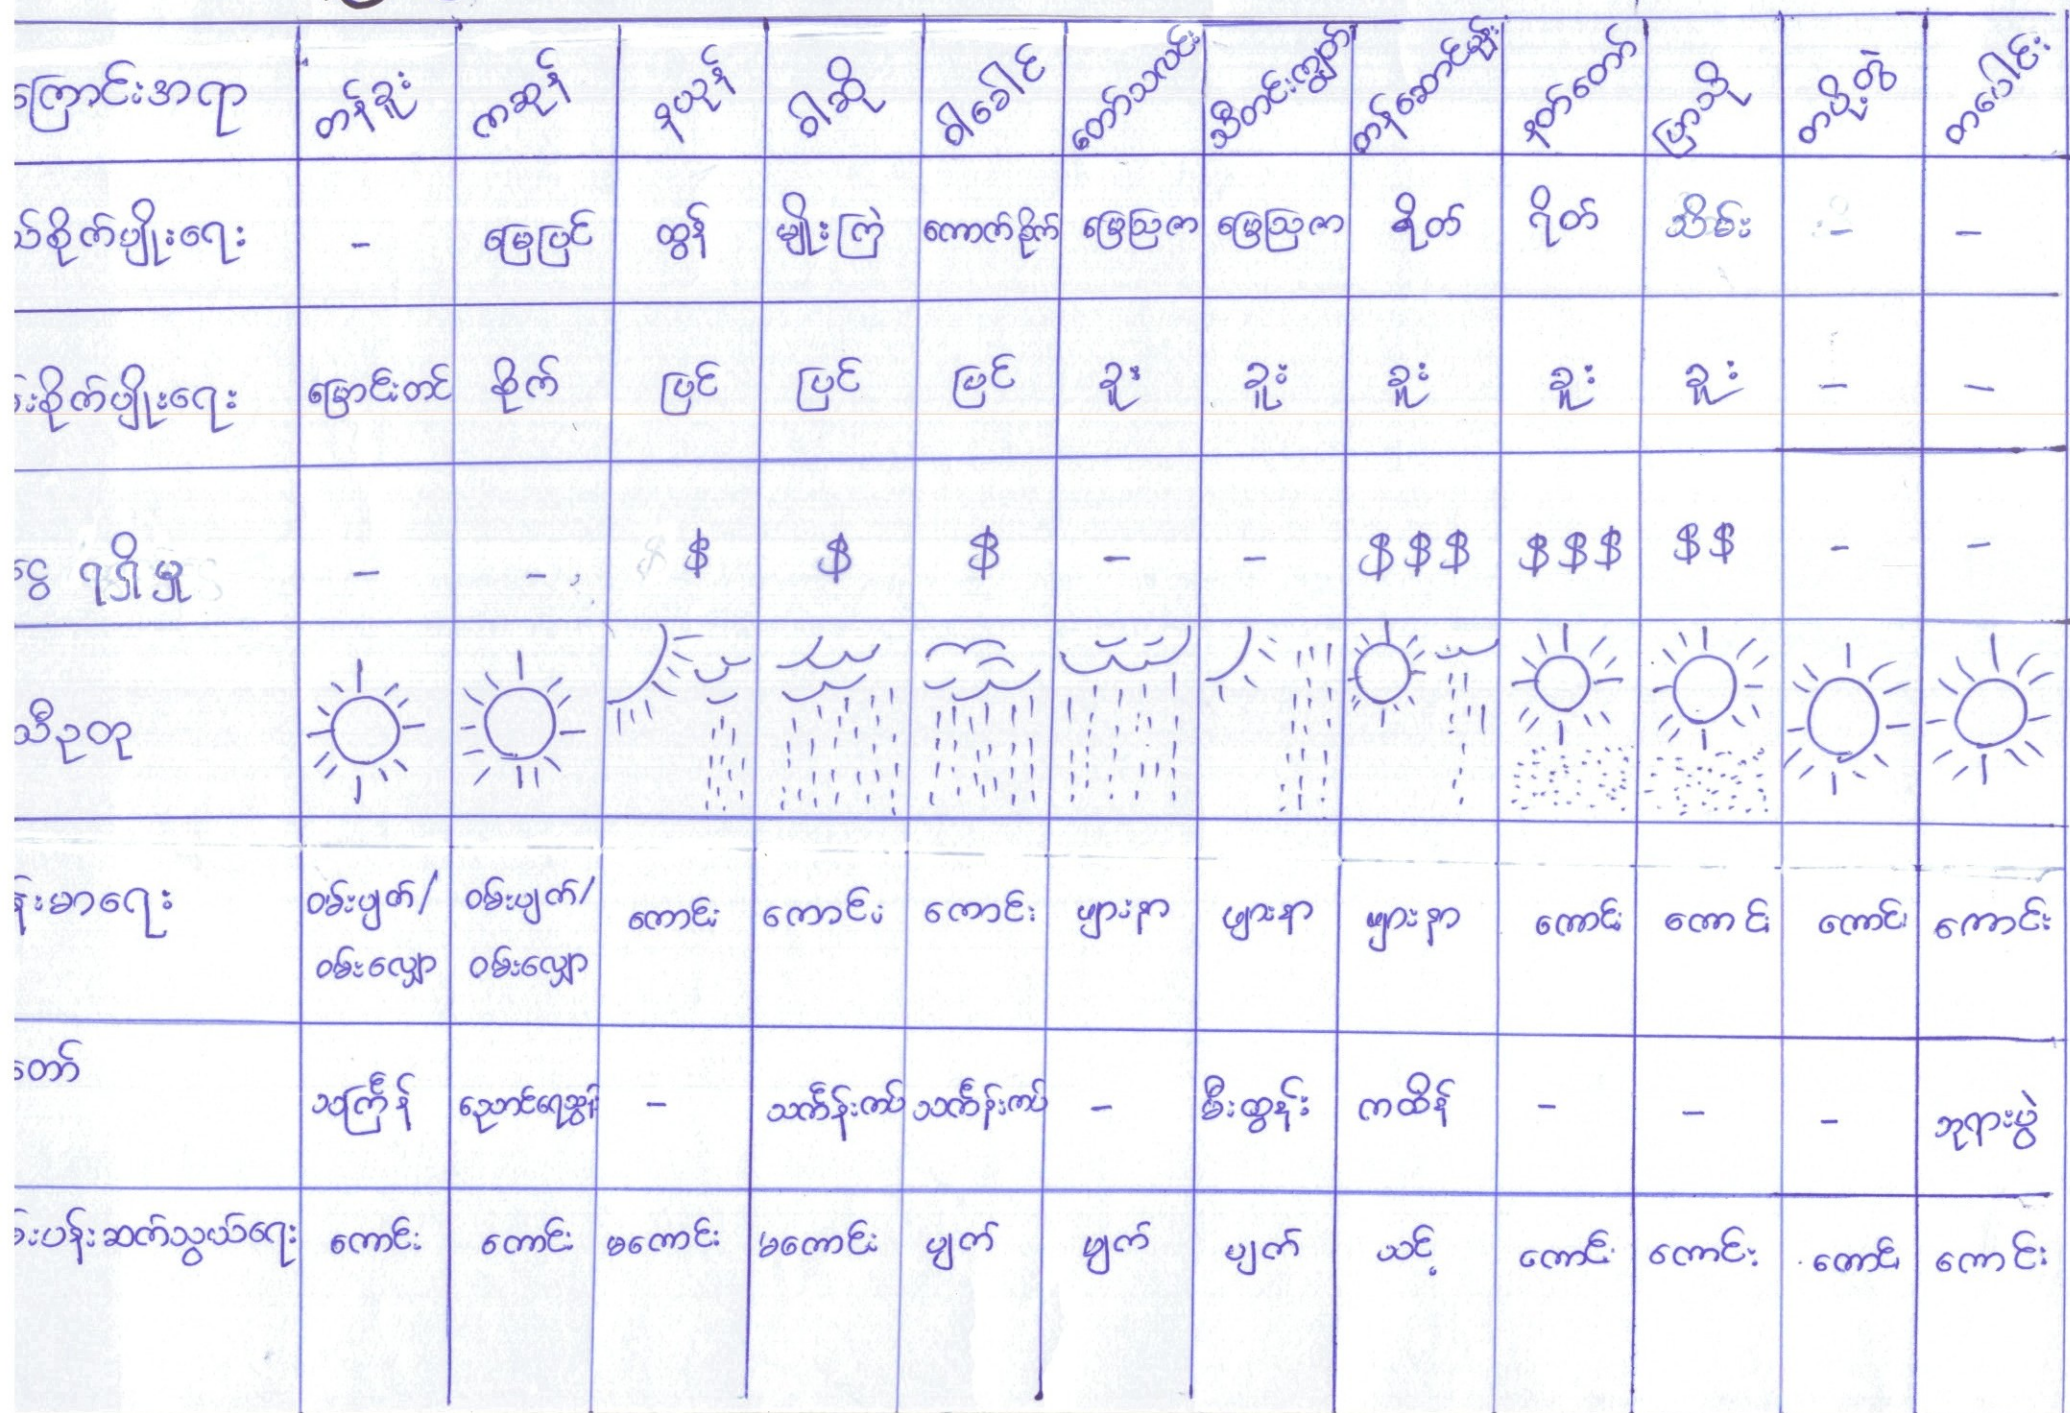 ကြောင်းအရာ တန်ခူး ကဆုန် နယုန် ဝါဆို ဝါခေါင် တော်သလင်း သီတင်းကျွတ် တန်ဆောင်မုန်း နတ်တော် ပြာသို တပို့တွဲ တပေါင်း
ယ်စိုက်ပျိုးရေး - မြေပြင် ထွန် မျိုးကြဲ ကောက်စိုက် မြေဩဇာ မြေဩဇာ ရိတ် ရိတ် သိမ်း - -
စိုက်ပျိုးရေး မြောင်းတင် စိုက် ပြင် ပြင် ပြင် ခူး ခူး ခူး ခူး ခူး - -
ငွေ ရရှိမှု - - $ $ $ - - $$$ $$$ $$ - -
သီဥတု
န်းမာရေး ဝမ်းပျက်/ ဝမ်းပျက်/ ကောင်း ကောင်း ကောင်း ဖျားနာ ဖျားနာ ဖျားနာ ကောင်း ကောင်း ကောင်း ကောင်း
ဝမ်းလျှော ဝမ်းလျှော
တော် သင်္ကြန် ညောင်ရေသွန်း - သင်္ကန်းကပ် သင်္ကန်းကပ် - မီးထွန်း ကထိန် - - - ဘုရားပွဲ
းပန်းဆက်သွယ်ရေး ကောင်း ကောင်း မကောင်း မကောင်း ပျက် ပျက် ပျက် ယင့် ကောင်း ကောင်း ကောင်း ကောင်း